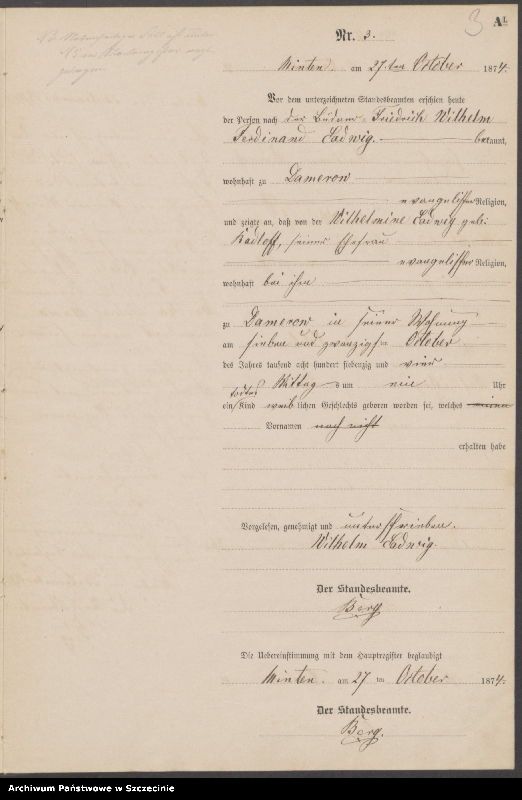 3
A¹
Nr. 3.
Minten am 27ten October 1874.
Vor dem unterzeichneten Standesbeamten erschien heute
der Person nach der Büdner Friedrich Wilhelm
Ferdinand Ladwig. bekannt,
wohnhaft zu Dameron
evangelischer Religion,
und zeigte an, daß von der Wilhelmine Ladwig geb:
Radloff, seiner Ehefrau
evangelischer Religion,
wohnhaft bei ihm
zu Dameron in seiner Wohnung
am sieben und zwanzigsten October
des Jahres tausend acht hundert siebenzig und vier
Mittags um ein Uhr
ein todtes Kind weiblichen Geschlechts geboren worden sei, welches einen
Vornamen noch nicht
erhalten habe
Vorgelesen, genehmigt und unterschrieben.
Wilhelm Ladwig.
Der Standesbeamte.
Berg
Die Uebereinstimmung mit dem Hauptregister beglaubigt
Minten. am 27 ten October 1874.
Der Standesbeamte.
Berg.
Archiwum Państwowe w Szczecinie